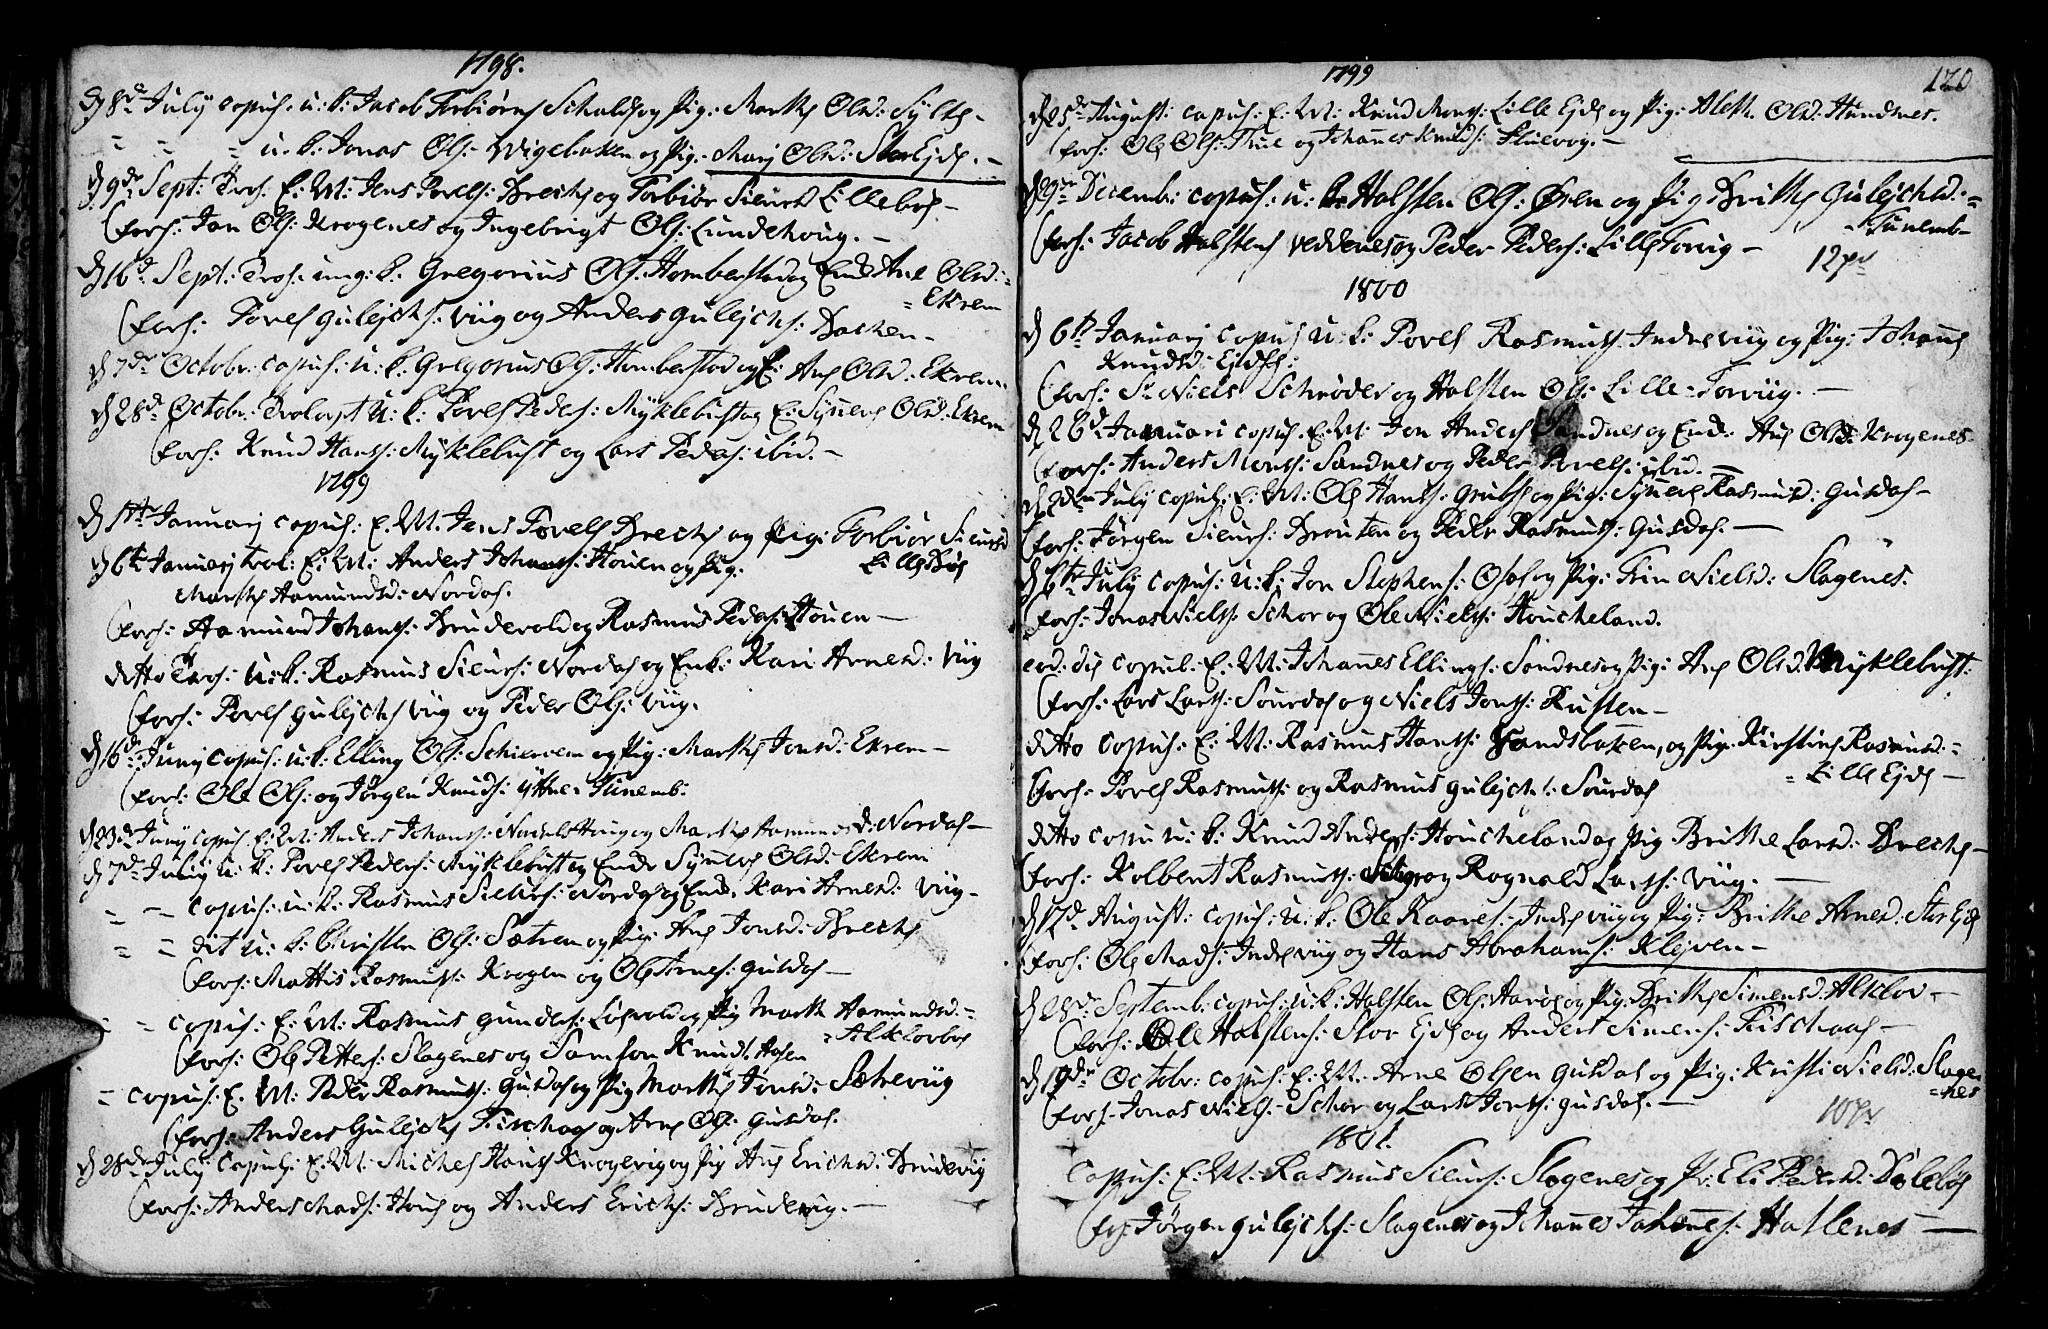 1798.
d 8de July copul. u: k: Jacob Torbiørns Schalds og Pig: Marthe Olsd: Sylte -
" " " u. k. Jonas Ols: Wigebaken og Pig. Mari Olsd: StorEjde. -
d 9de Sept: Trol. E. M: Jens Povels: Brechs og Torbiør Siursd Lillebøe -
(fors: Jon Ols: Krogenes og Ingebrigt Ols: Lundehoug. -
d 16de Sept: Trol. ung: k. Gregorius Ols: Homberstad og Enk Ane Olsd: =
= Ekrem
(fors: Povel Gulejchs: Viig og Anders Gulejchs: Bachen -
d 7de Octobr: copul: u: k. Gregorius Ols: Homberstad og E: Ane Olsd: Ekrem
d 28de Octobr: Trolovet u: k: Povel Peders: Myklebust og E: Synneve Olsd: Ekrem
(fors: Knud Hans: Myklebust og Lars Peders: ibid. -
1799
d 1ste Januarj copul: E. M. Jens Povels Brechs og Pig: Torbiør Siursd
LilleBøe
d 6te Januarj trol: E: M: Anders Johans: Houen og Pig:
Marthe Aamundsd: Nordas.
(fors: Aamund Johans: Brudevold og Rasmus Peders: Houen -
ditto Trol: u: k: Rasmus Siurs: Nordas og Enk: Kari Arnesd: Viig
(fors: Povel Gulejchs Viig og Peder Ols: Viig.
d 16de Junj copul: u: k: Elling Ols: Schierven og Pig: Marthe Jonsd: Ekrem -
(fors: Ole Ols: og Jørgen Knuds: Ytte Tunemb:
d 23de Junj copul E: M: Anders Johans: og Marthe Aamundsd: Nordas -
d 7de Julij u: k: Povel Peders: Myklebust og Enke Synneve Olsd: Ekrem
" - copul: u: k: Rasmus Siurs: Nordas og Enk. Kari Arnesd: Viig -
" = dit u: k: Christen Ols: Sætren og Pig: Ane Jonsd: Brechs
(fors: Mattis Rasmus: Krogen og Ole Arnes: Gusdas -
" - copul: E. M: Rasmus Gunders: Løgvold og Pig Marth Aamundsd: =
= Alklovboe
(fors: Ole Petters: Slagenes og Samson Knuds. Aasen
- copul: E. M: Peder Rasmus: Gusdas og Pig Marthe Jonsd: Sætreviig
(fors: Anders Gulejchs Fischaa og Arne Ols: Gusdas.
d 28de July copul: E: M: Michel Hans Krogeviig og Pig Ane Erichsd: Brudeviig
(fors: Anders Mads: Houe og Anders Erichs: Brudeviig. -
1799
120
d 25de August: copul: E: M: Knud Mons: Lille Ejde og Pig: Aleth Olsd: Hundsnes.
(fors: Ole Ols: Thue og Johannes Knuds: Fluevog. -
d 29de Decemb: copul: u: k: Halsten Ols: Øren og Pig Brithe Gulejchsd: =
- Tunemb -
(fors: Jacob Halstens Veddenes og Peder Peders: Lille Torvig -
12 pr
1800
d 6te Januarj copul u: k: Povel Rasmus: Indreviig og Pig: Johanne
Knudsd: Ejdse:
(fors: Sr Niels Schrøder og Halsten Ols: Lille-Torviig. -
d 26de Januarj copul. E: M: Jon Anders Sandnes og Enk: Ane Olsd: Krogenes
(fors: Anders Mons: Sandnes og Peder Povels: ibid. -
d 2den July copul: E: M: Ole Hans: Grubse og Pig: Synneve Rasmusd: Gusdas -
(fors: Jørgen Siurs: Brouten og Peder Rasmus: Gusdas. -
d 6te July copul: u: k: Jon Stephens: Ose og Pig: Trin Nielsd: Slagenes.
(fors: Jonas Niels: Schor og Ole Niels: Houcheland.
eod: die copul: E: M: Johannes Ellings: Sandnes og Pig: Ane Olsd: Myklebust:
(fors: Lars Lars: Sourdas og Niels Jons: Rusten -
ditto copul: E: M: Rasmus Hans: Sandsbakken, og Pig: Kirstine Rasmusd: =
= Lille Ejde -
(fors: Povel Rasmus: og Rasmus Gulejchs: Sourdas
ditto copul u: k: Knud Anders: Houcheland og Pig Brithe Larsd: Brechs -
(fors: Kolbent Rasmus: og Ragnald Lars: Viig. -
d 17de August: copul: u: k: Ole Knaves: Indreviig og Pig: Brithe Arnesd: StorEjde
(fors: Ole Mads: Indreviig og Hans Abrahams: Klejven -
d 28de Septemb: copul: u: k: Halsten Ols: Aarøe og Pig: Brithe Simensd: Alklov -
(fors: Ole Halstens: Stor Ejde og Anders Simens: Fischaas -
d 19de Octobr: copul: E: M: Arne Olsen Gusdas og Pig: Kristi Nielsd: Slage
= nes
(fors. Jonas Niels: Schor og Lars Jons: Gusdas. -
10 pr
1801.
Copul: E: M: Rasmus Siurs: Slagenes og Pi: Eli Pedersd: Dalebøe
(fors: Jørgen Gulejchs: Slagenes og Johannes Johannes: Hatlenes -